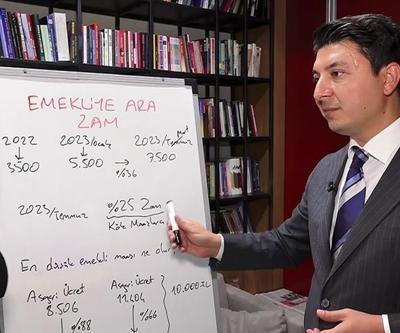 EMEKLİYE ARA
ZAM
2022 2023/ocak 2023/Temmuz
3500 5.500 → 7.500
%36
2023/Temmuz %25 Zam
Kök Maaşlara
En düşük emekli maaşı ne
Asgari Ücret Asgari Ücret
8.506 11.404 10.000TL
%88 %66